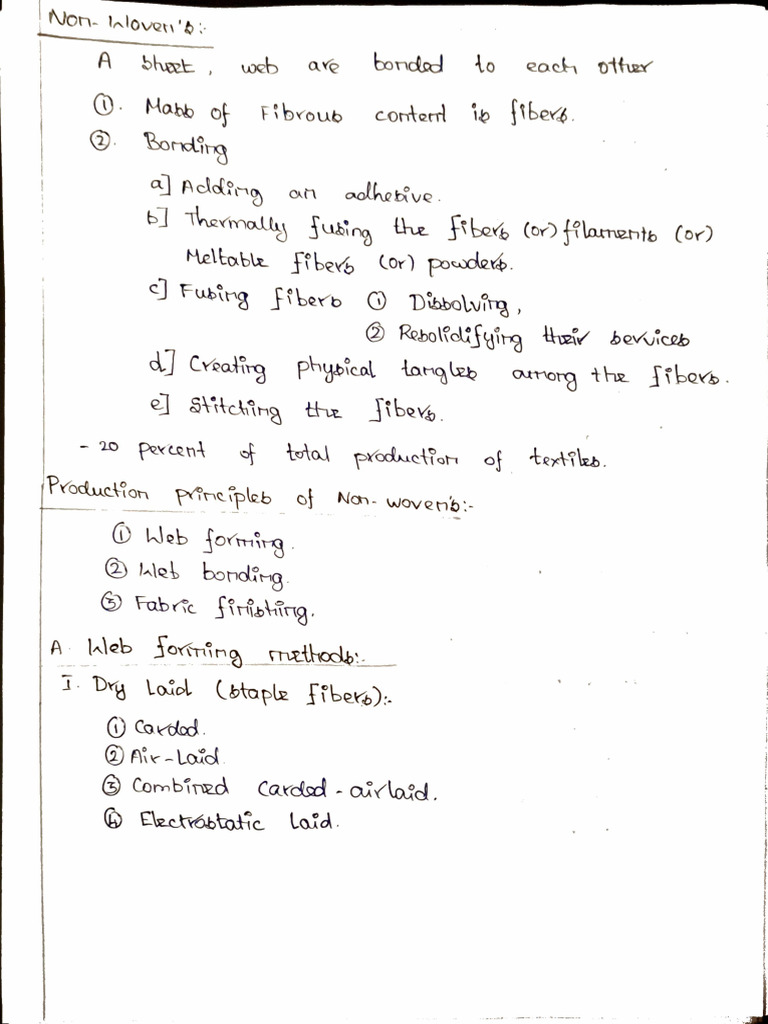 Non-Woven's:-
A sheet, web are bonded to each other
①. Mass of Fibrous content is fibers.
②. Bonding
a] Adding an adhesive.
b] Thermally fusing the fibers (or) filaments (or)
Meltable fibers (or) powders.
c] Fusing fibers ① Dissolving,
② Resolidifying their services
d] Creating physical tangles among the fibers.
e] Stitching the fibers.
- 20 percent of total production of textiles.
Production principles of Non-woven's:-
① Web forming.
② Web bonding.
③ Fabric finishing.
A. Web forming methods:-
I. Dry Laid (staple fibers):-
① Carded.
② Air-Laid.
③ Combined carded-airlaid.
④ Electrostatic Laid.